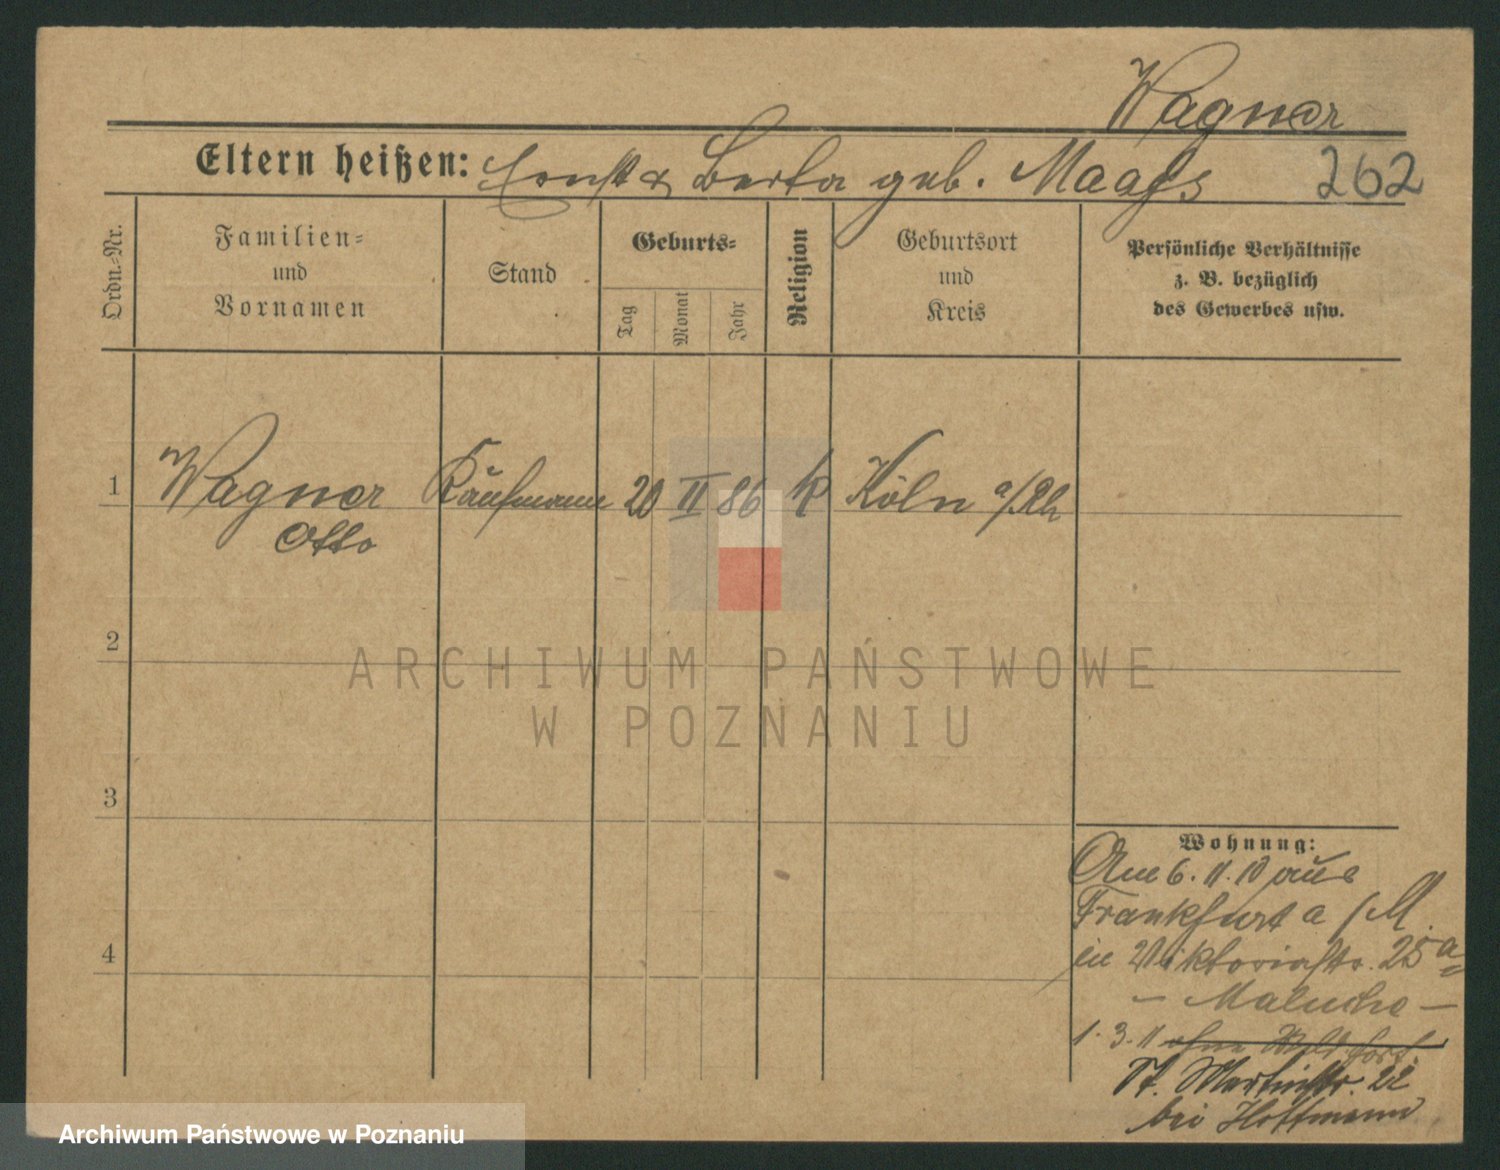 Wagner
Eltern heißen: Ernst & Berta geb. Maass 262
Ordn.-Nr.
Familien-
und
Vornamen
Stand
Geburts-
Tag
Monat
Jahr
Religion
Geburtsort
und
Kreis
Persönliche Verhältnisse
z. B. bezüglich
des Gewerbes usw.
1 Wagner Kaufmann 20 II 86 k Köln a/Rh
Otto
2
ARCHIWUM PAŃSTWOWE
W POZNANIU
3
4
Wohnung:
Am 6. 11. 10 aus
Frankfurt a/M.
in Viktoriastr. 25a
– Malucha –
1. 3. 11 ohne fort.
St. Martinstr. 22
bei Hoffmann
Archiwum Państwowe w Poznaniu